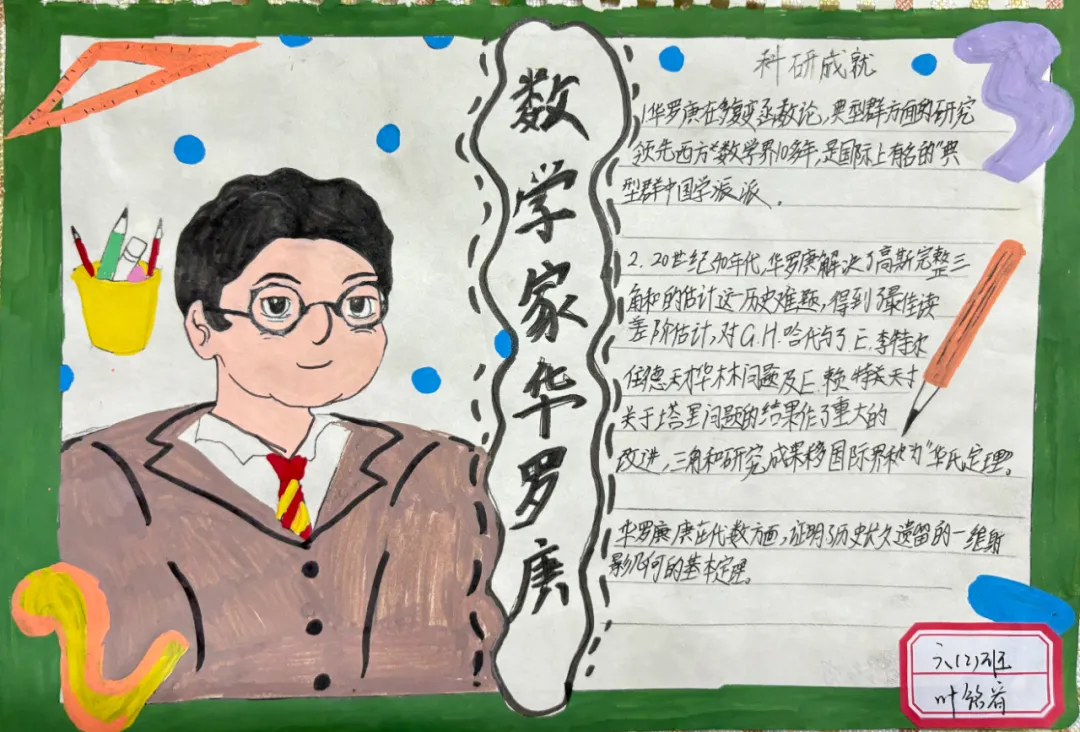 数学家华罗庚
科研成就
1华罗庚在多复变函数论，典型群方面的研究
领先西方数学界10多年，是国际上有名的"典
型群中国学派派．
2．20世纪40年代，华罗庚解决了高斯完整三
角和的估计这一历史难题，得到了最佳误
差阶估计，对G.H.哈代与J.E.李特尔
伍德关于华林问题及E.赖特关于
关于塔里问题的结果作了重大的
改进，三角和研究成果移国际界称为"华氏定理"。
华罗庚庚在代数方面，证明了历史长久遗留的一维射
影几何的基本定理。
六(2)班
叶铭